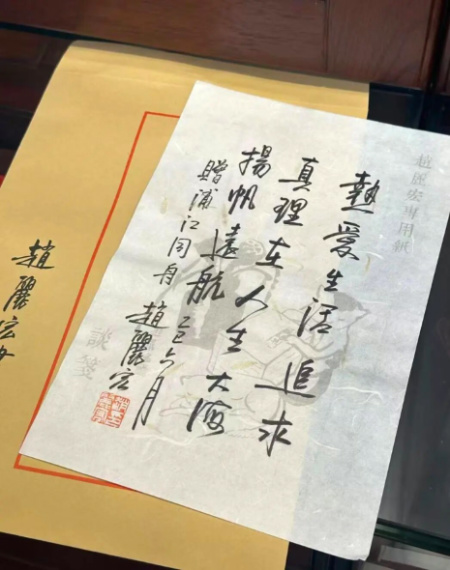 熱愛生活追求
真理在人生大海
揚帆遠航
贈浦江同舟
趙麗宏
乙巳六月
趙麗宏專用紙
談箋
趙麗宏